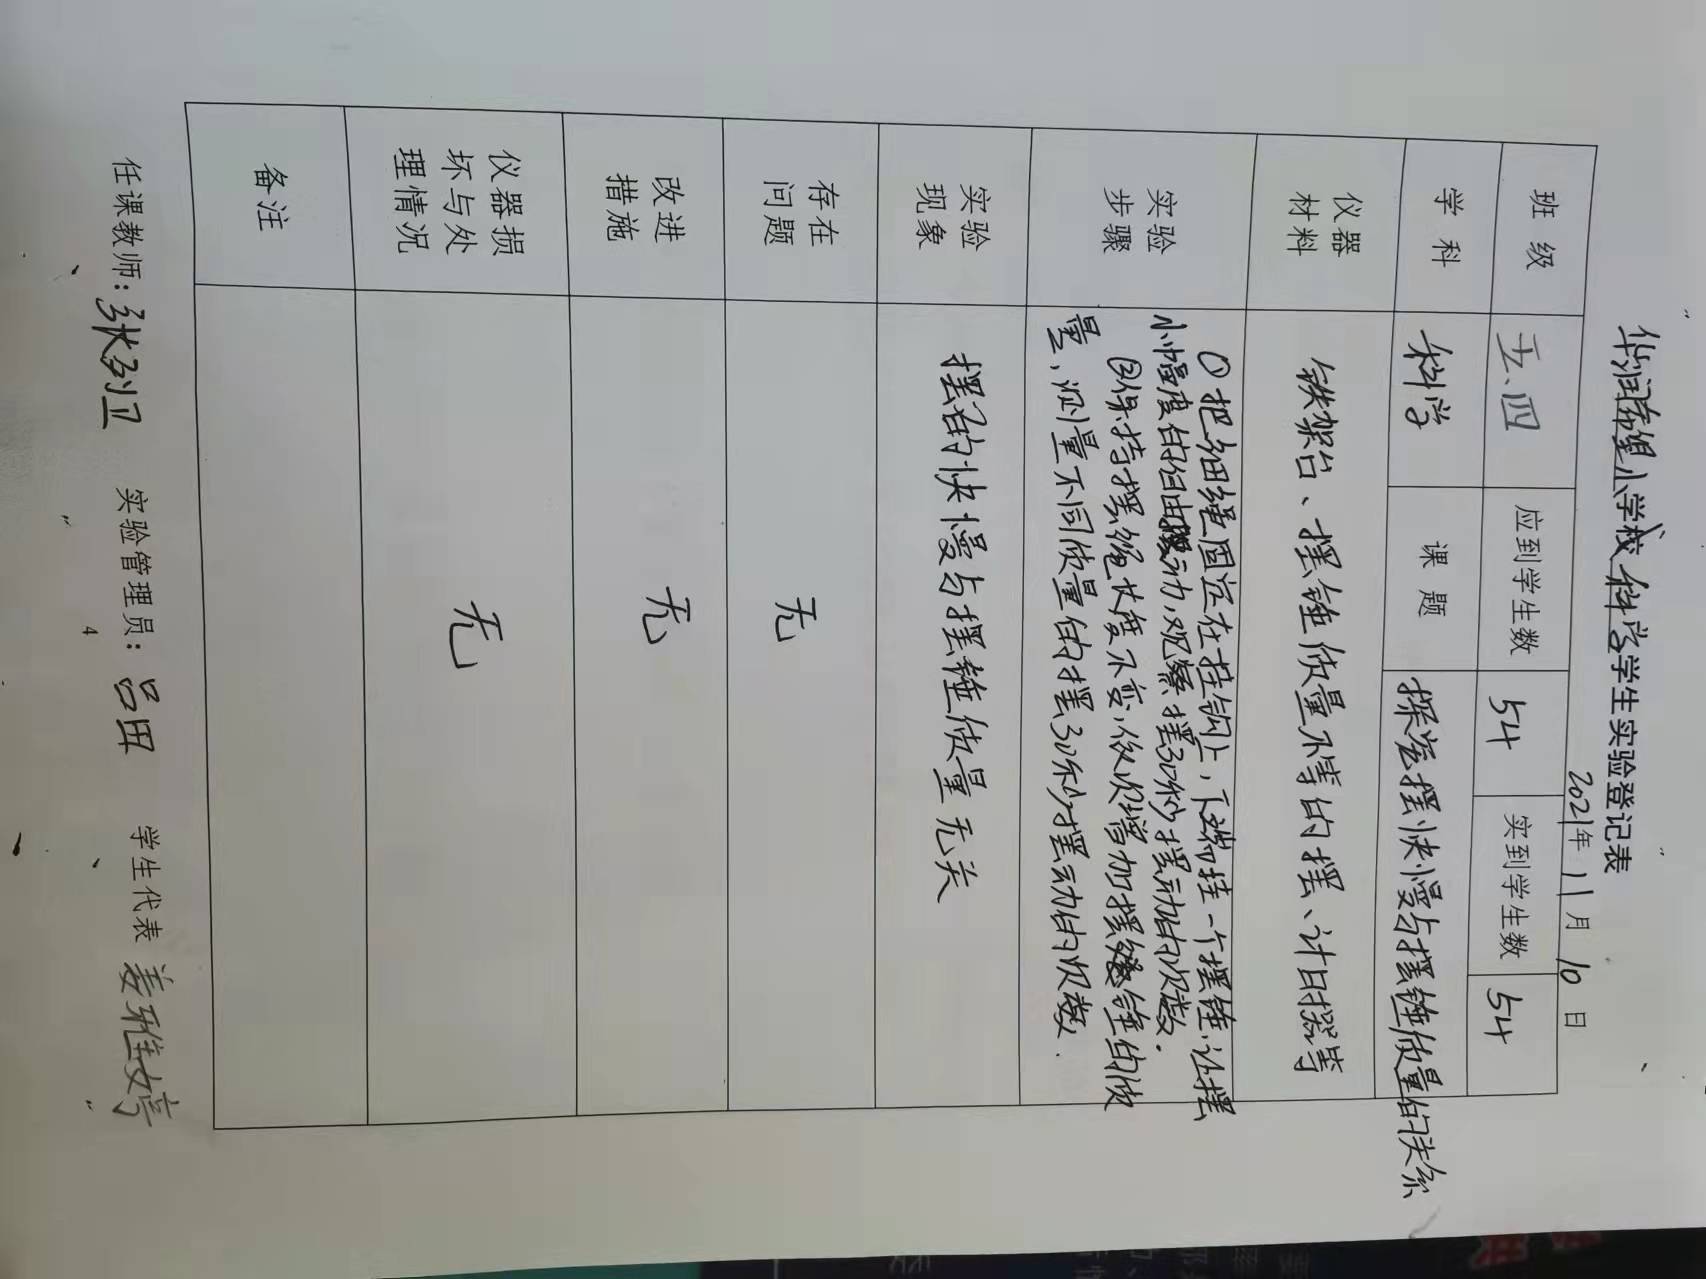 小学校科学学生实验登记表
2021年11月10日
班级 五.四 应到学生数 54 实到学生数 54
学科 科学 课题 探究摆快慢与摆锤质量的关系
仪器材料 铁架台、摆锤质量不等的摆、计时器等
实验步骤 ①把细绳固定在挂钩上,下端挂一个摆锤,让摆
小幅度的自由摆动,观察摆30秒摆动的次数.
②保持摆绳长度不变,依次增加摆锤的质
量,测量不同质量的摆30秒摆动的次数.
实验现象 摆的快慢与摆锤质量无关
存在问题 无
改进措施 无
仪器损坏与处理情况 无
备注
任课教师: 实验管理员:吕田 学生代表 姜雅婷
4